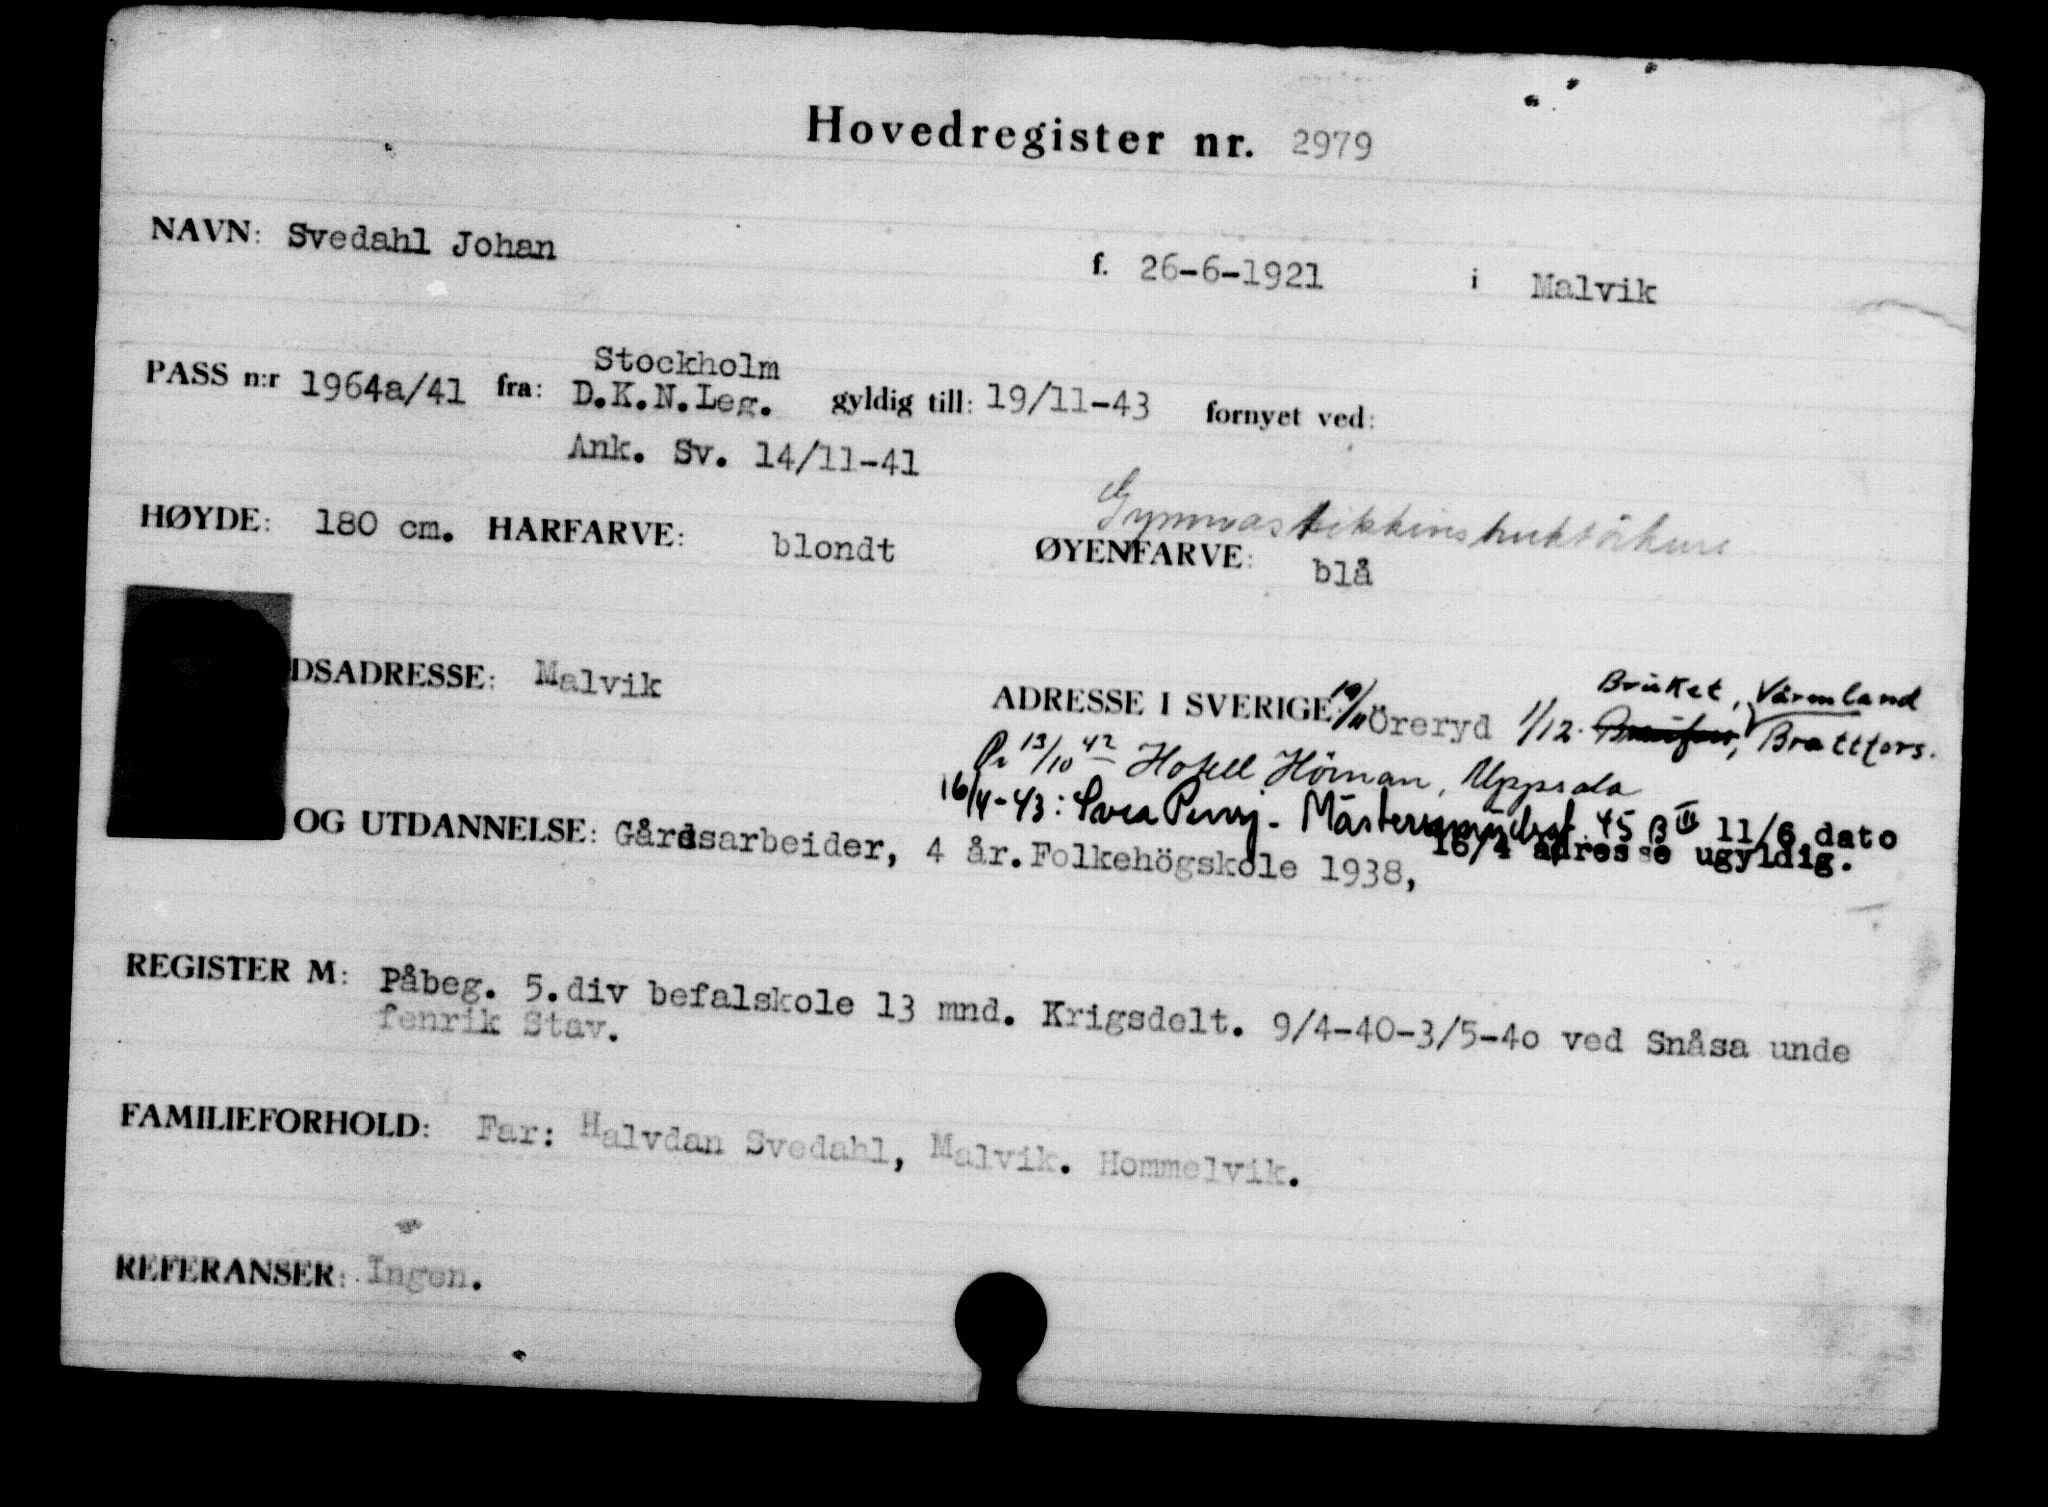 Hovedregister nr. 2979
NAVN: Svedahl Johan f. 26-6-1921 i Malvik
Stockholm
PASS n:r 1964a/41 fra: D.K.N.Leg. gyldig till: 19/11-43 fornyet ved:
Ank. Sv. 14/11-41
Gymnastikkinstruktörkurs
HØYDE: 180 cm. HÅRFARVE: blondt ØYENFARVE: blå
Bruket, Värmland
DSADRESSE: Malvik ADRESSE I SVERIGE: 19/11 Öreryd 1/12. Brattfors.
13/10 42 Hotell Hörnan, Uppsala
16/4-43: Svea Pensj. - Mäster 45 B III 11/6 dato
16/4 adresse ugyldig.
OG UTDANNELSE: Gårdsarbeider, 4 år. Folkehögskole 1938,
REGISTER M: Påbeg. 5.div befalskole 13 mnd. Krigsdelt. 9/4-40-3/5-4o ved Snåsa unde
fenrik Stav.
FAMILIEFORHOLD: Far: Halvdan Svedahl, Malvik. Hommelvik.
REFERANSER: Ingen.